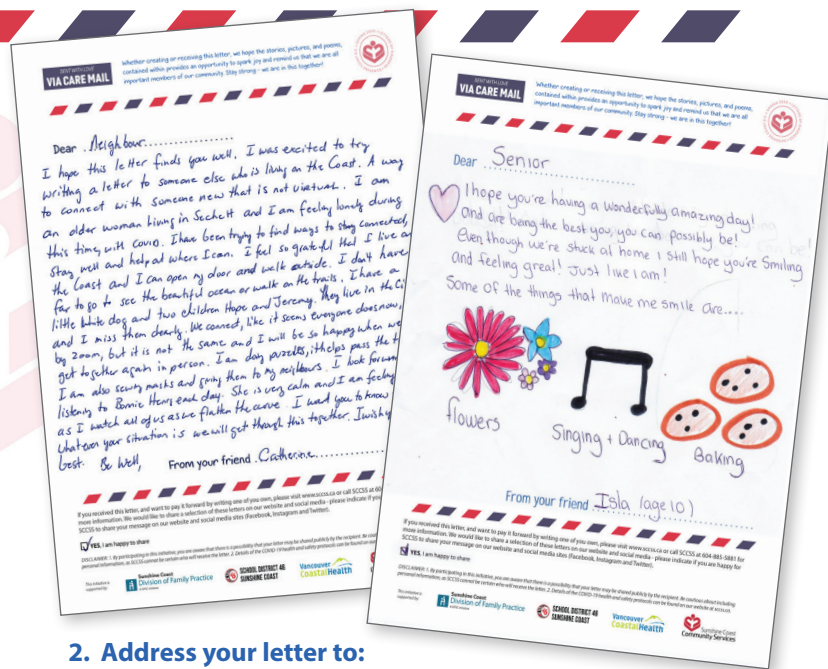 SENT WITH LOVE
VIA CARE MAIL
Whether creating or receiving this letter, we hope the stories, pictures, and poems,
contained within provides an opportunity to spark joy and remind us that we are all
important members of our community. Stay strong - we are in this together!
Dear Neighbour
I hope this letter finds you well. I was excited to try
writing a letter to someone else who is living on the Coast. A way
to connect with someone new that is not virtual. I am
an older woman living in Sechelt and I am feeling lonely during
this time, with covid. I have been trying to find ways to stay connected,
stay well and help at where I can. I feel so grateful that I live on
the Coast and I can open my door and walk outside. I don't have
far to go to see the beautiful ocean or walk on the trails. I have a
little white dog and two children Hope and Jeremy. They live in the Ci
and I miss them dearly. We connect, like it seems everyone does now,
by zoom, but it is not the same and I will be so happy when we
get together again in person. I am doing puzzles, it helps pass the t
I am also sewing masks and giving them to my neighbours. I look forwar
listening to Bonnie Henry each day. She is very calm and I am feeling
as I watch all of us as we flatten the curve. I want you to know
whatever your situation is we will get through this together. I wish y
best. Be Well,
From your friend Catherine
If you received this letter, and want to pay it forward by writing one of you own, please visit www.sccss.ca or call SCCSS at 604
more information. We would like to share a selection of these letters on our website and social media - please indicate if you
SCCSS to share your message on our website and social media sites (Facebook, Instagram and Twitter).
YES, I am happy to share
DISCLAIMER: 1. By participating in this initiative, you are aware that there is a possibility that your letter may be shared publicly by the recipient. Be cau
personal information, as SCCSS cannot be certain who will receive the letter. 2. Details of the COVID-19 health and safety protocols can be found on our
This initiative is
supported by:
Sunshine Coast
Division of Family Practice
SCHOOL DISTRICT 46
SUNSHINE COAST
Vancouver
CoastalHealth
SENT WITH LOVE
VIA CARE MAIL
Whether creating or receiving this letter, we hope the stories, pictures, and poems,
contained within provides an opportunity to spark joy and remind us that we are all
important members of our community. Stay strong - we are in this together!
Dear Senior
I hope you're having a wonderfully amazing day!
and are being the best you, you can possibly be!
Even though we're stuck at home I still hope you're smiling
and feeling great! Just like I am!
Some of the things that make me smile are....
flowers
Singing + Dancing
Baking
From your friend Isla (age 10)
If you received this letter, and want to pay it forward by writing one of you own, please visit www.sccss.ca or call SCCSS at 604-885-5881 for
more information. We would like to share a selection of these letters on our website and social media - please indicate if you are happy for
SCCSS to share your message on our website and social media sites (Facebook, Instagram and Twitter).
YES, I am happy to share
DISCLAIMER: 1. By participating in this initiative, you are aware that there is a possibility that your letter may be shared publicly by the recipient. Be cautious about including
personal information, as SCCSS cannot be certain who will receive the letter. 2. Details of the COVID-19 health and safety protocols can be found on our website at sccss.ca.
This initiative is
supported by:
Sunshine Coast
Division of Family Practice
SCHOOL DISTRICT 46
SUNSHINE COAST
Vancouver
CoastalHealth
Sunshine Coast
Community Services
2. Address your letter to: